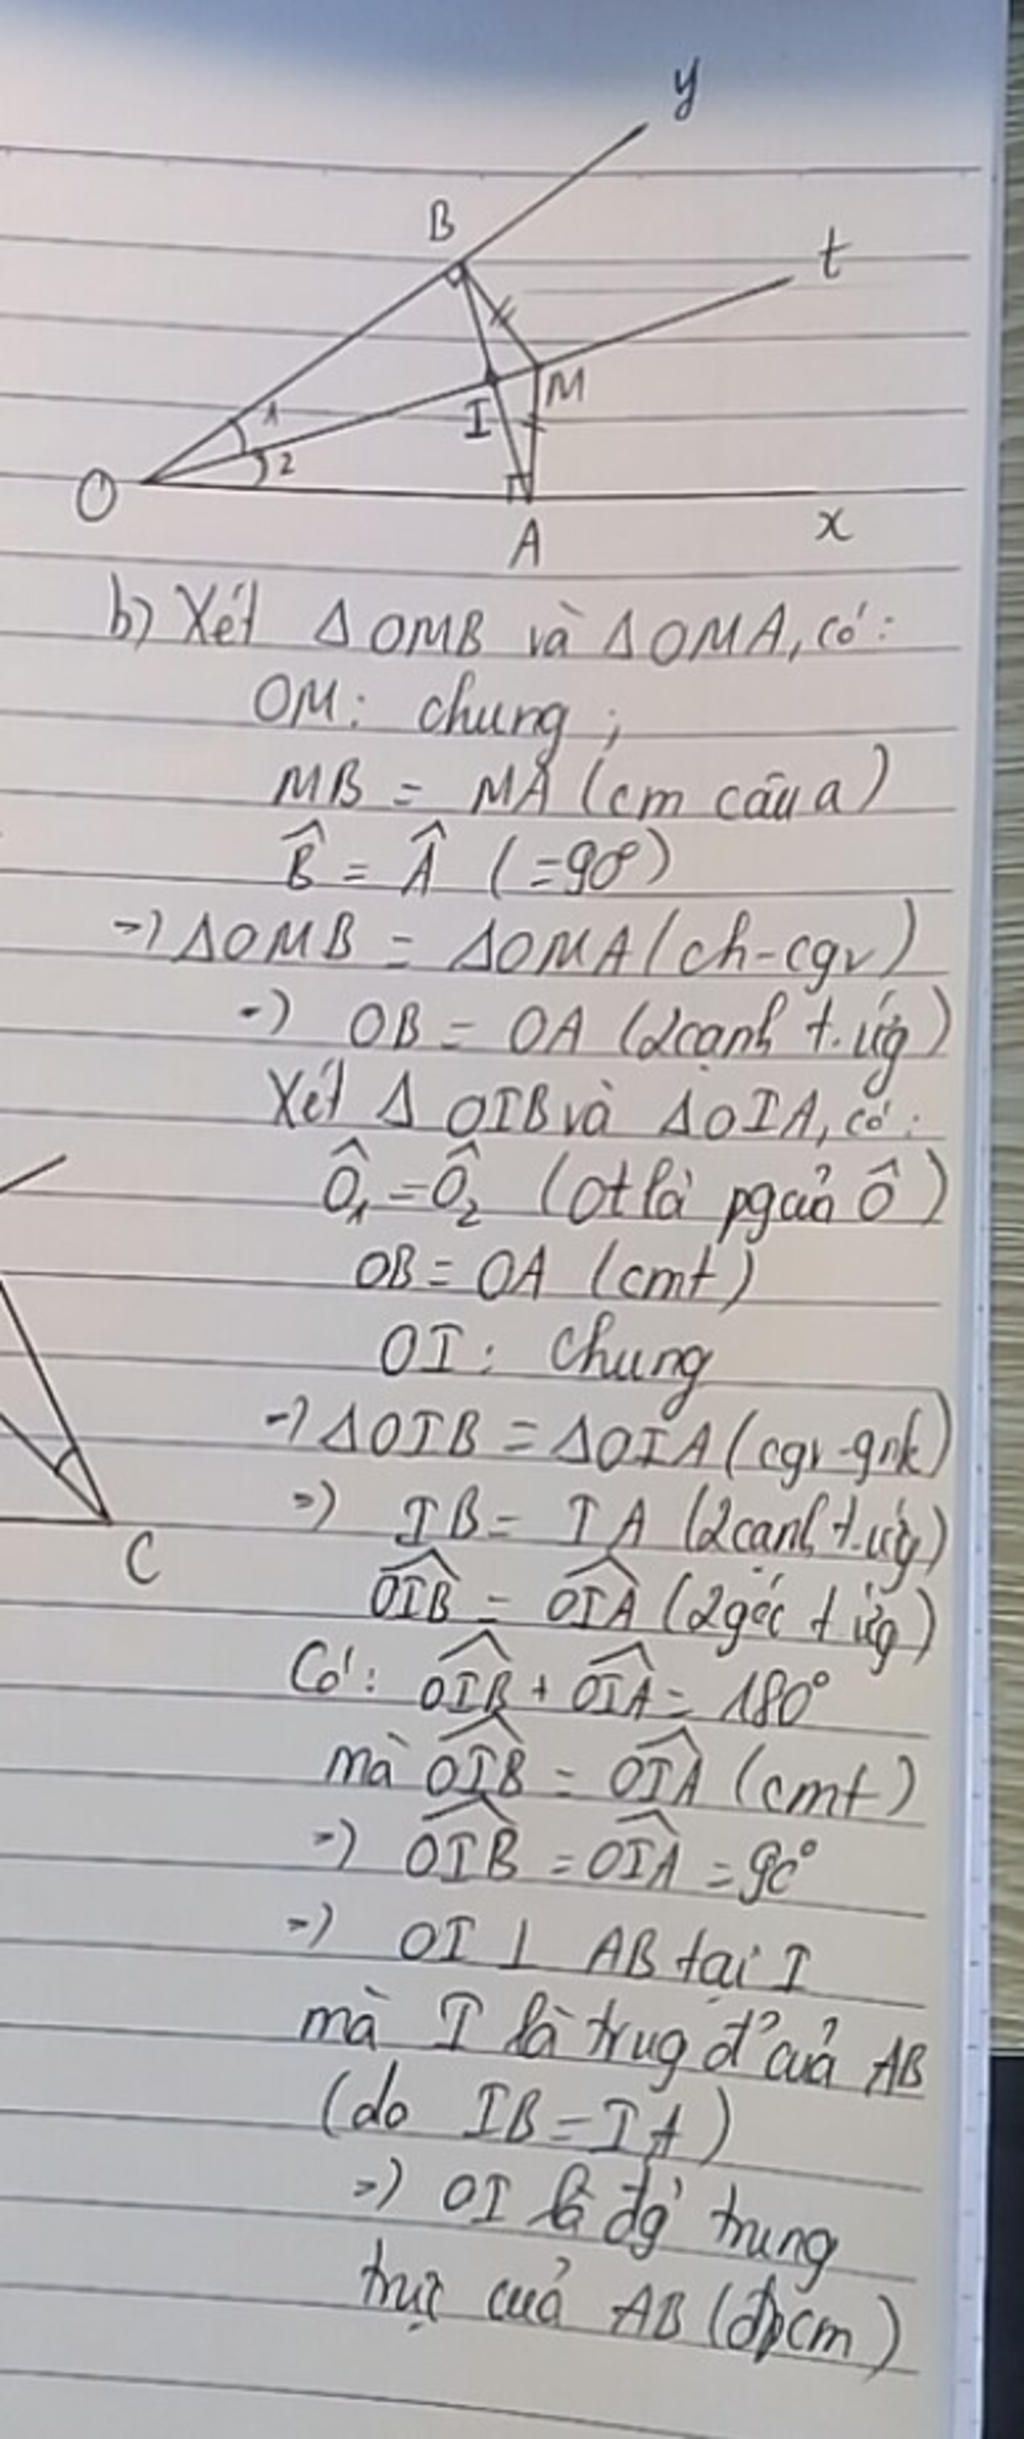 y
B
t
1
I
M
2
O
A
x
b) Xét Δ OMB và Δ OMA, có:
OM: chung;
MB = MA (cm câu a)
B̂ = Â (=90°)
=) ΔOMB = ΔOMA (ch-cgv)
=) OB = OA (2 cạnh t.ứg)
Xét Δ OIB và ΔOIA, có:
Ô₁ = Ô₂ (Ot là pg của Ô)
OB = OA (cmt)
OI: chung
=) ΔOIB = ΔOIA (cgv-gnk)
=) IB = IA (2 cạnh t.ứg)
C
OIB̂ = OIÂ (2 góc t ứg)
Có: OIB̂ + OIÂ = 180°
mà OIB̂ = OIÂ (cmt)
=) OIB̂ = OIÂ = 90°
=) OI ⊥ AB tại I
mà I là trug đ' của AB
(do IB = IA)
=) OI là đg' trung
trực của AB (đpcm)